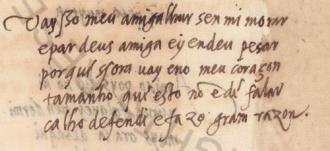 Vaysso meu amigalhur sen mi morar
epar deus amiga ey endeu pesar
por qui ssora uay eno meu coraçon
tamanho qui esto nō e di falar
ca lho defendi e fazo gram razon.